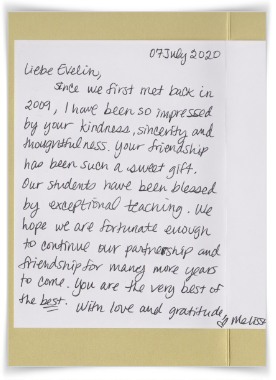 07 July 2020
Liebe Evelin,
Since we first met back in
2009, I have been so impressed
by your kindness, sincerity and
thoughtfulness. Your friendship
has been such a sweet gift.
Our students have been blessed
by exceptional teaching. We
hope we are fortunate enough
to continue our partnership and
friendship for many more years
to come. You are the very best of
the best. With love and gratitude,
Melissa